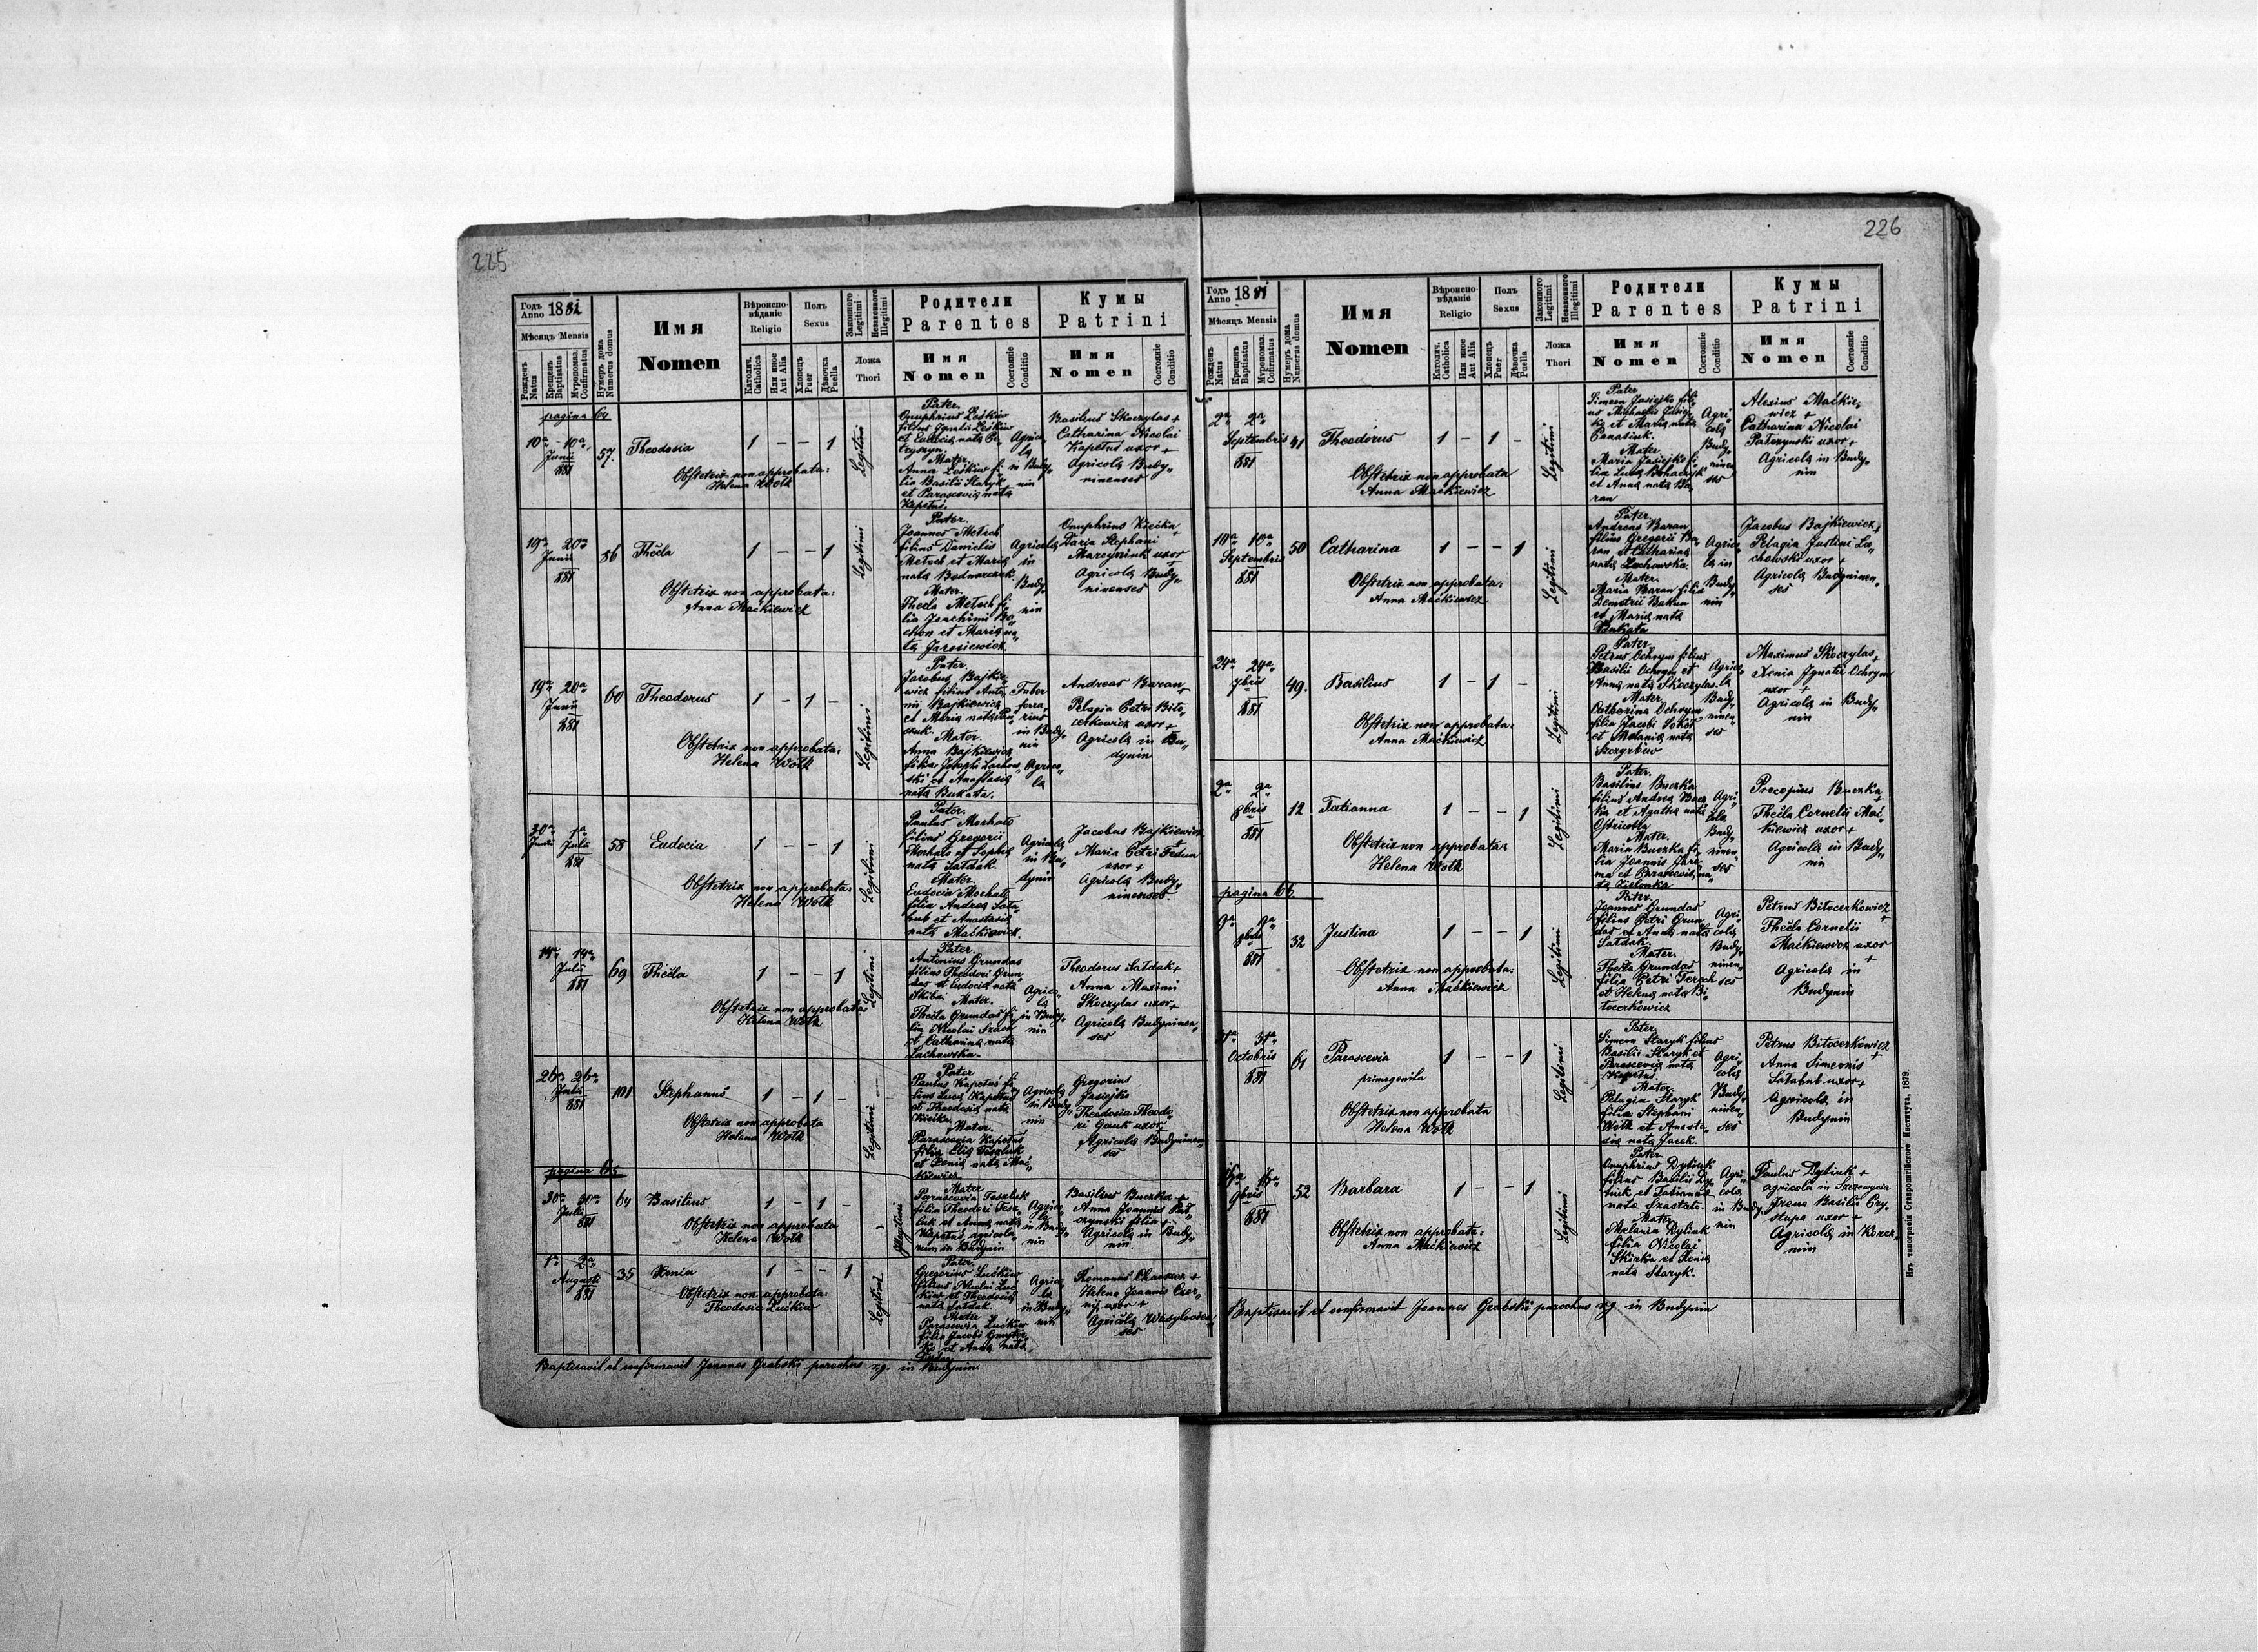 225
Годъ Anno 1881
Мѣсяцъ Mensis
Рожденъ Natus
Крещенъ Baptisatus
Муропомаз. Confirmatus
Нумеръ дома Numerus domus
Имя
Nomen
Вѣроиспо-
вѣданіе
Religio
Католич. Catholica
Или иное Aut Alia
Полъ
Sexus
Хлопецъ Puer
Дѣвочка Puella
Законного Legitimi
Незаконного Illegitimi
Ложа
Thori
Родители
Parentes
Имя
Nomen
Состояніе Conditio
Кумы
Patrini
Имя
Nomen
Состояніе Conditio
pagina 64
10a 10a
Junii
881
57.
Theodosia
1 - - 1
Obstetrix non approbata:
Helena Wolk
Legitimi
Pater.
Onuphrius Leśkiw
filius Ignatii Leśkiw
et Eudocia nata
Mater.
Anna Leśkiw fi„
lia Basilii Staryk
et Parascevia nata
Kapetus.
Agrico„
la
in Budy„
nin
Basilius Skoczylas +
Catharina Nicolai
Kapetus uxor +
Agricola Budy„
ninenses
19a 20a
Junii
881
56
Thecla
1 - - 1
Obstetrix non approbata:
Anna Maćkiewicz
Legitimi
Pater.
Joannes Metsch
filius Danielis
Metsch et Maria
nata Bodnarczuk.
Mater.
Thecla Metsch fi„
lia Joachimi Bo„
chon et Maria na„
ta Jarosiewicz.
Agricola
in
Budy„
nin
Onuphrius Kicika +
Daria Stephani
Marcyniuk uxor +
Agricola Budy„
ninenses
19a 20a
Junii
881
60
Theodorus
1 - 1 -
Obstetrix non approbata:
Helena Wolk
Legitimi
Pater.
Jacobus Bajkie„
wicz filius Anto„
nii Bajkiewicz
et Maria nata
Mater.
Anna Bajkiewicz
filia Josephi Lachow„
ski et Anastasia
nata Bukata.
Faber
ferra„
rius
in Budy„
nin
Agrico„
la
Andreas Baran +
Pelagia Petri Bito„
cerkowicz uxor +
Agricola in Bu„
dynin
30a 1a
Junii Julii
881
58
Eudocia
1 - - 1
Obstetrix non approbata:
Helena Wolk
Legitimi
Pater.
Paulus Mochalo
filius Gregorii
Mochalo et Sophia
nata Saldak.
Mater.
Eudocia Mochalo
filia Andrea Sala„
bub et Anastasia
nata Maćkiewicz.
Agricola
in Bu„
dynin
Jacobus Bajkiewicz +
Maria Petri Fedun
uxor +
Agricola Budy„
ninenses.
14a 14a
Julii
881
69
Thecla
1 - - 1
Obstetrix non approbata:
Helena Wolk
Legitimi
Pater.
Antonius Grundas
filius Theodori Grun„
das et Eudocia nata
Skiba.
Mater.
Thecla Grundas fi„
lia Nicolai
et Catharina nata
Lachowska.
Agrico„
la
in Budy„
nin
Theodorus Saldak +
Anna Maximi
Skoczylas uxor +
Agricola Budyninen„
ses
26a 26a
Julii
881
101
Stephanus
1 - 1 -
Obstetrix non approbata
Helena Wolk
Legitimi
Pater
Paulus Kapetus fi„
lius Luca Kapetus
et Theodosia nata
Kicika.
Mater.
Parascevia Kapetus
filia Elia Teszluk
et Xenia nata Mać„
kiewicz
Agricola
in Budy„
nin
Gregorius
Jasiejko
Theodosia Theodo„
ri Gauk uxor +
Agricola Budyninen„
ses
pagina 65
30a 30a
Julii
881
64
Basilius
1 - 1 -
Obstetrix non approbata
Helena Wolk
Illegitimi
Mater
Parascevia Teszluk
filia Theodori Tesz„
luk et Anna nata
Kapetus, agricola„
rum in Budynin
Agrico„
la
in Budy„
nin
Basilius Buczka +
Anna Joannis Pał„
czynski filia +
Agricola in Budy„
nin.
1a 2a
Augusti
881
35
Xenia
1 - - 1
Obstetrix non approbata:
Theodosia Lućkiw
Legitimi
Pater.
Gregorius Lućkiw
filius Nicolai Luć„
kiw et Theodosia
nata Saldak.
Mater
Parascevia Lućkiw
filia Jacobi
et Anna nata
Agrico„
la
in Budy„
nin
Romanus +
Helena Joannis
uxor +
Agricola Wasyloviens
ses
Baptisavit et confirmavit Joannes Grabski parochus r.g. in Budynin.
226
Годъ Anno 1881
Мѣсяцъ Mensis
Рожденъ Natus
Крещенъ Baptisatus
Муропомаз. Cofirmatus
Нумеръ дома Numerus domus
Имя
Nomen
Вѣроиспо-
вѣданіе
Religio
Католич. Catholica
Или иное Aut Alia
Полъ
Sexus
Хлопецъ Puer
Дѣвочка Puella
Законного Legitimi
Незаконного Illegitimi
Ложа
Thori
Родители
Parentes
Имя
Nomen
Состояніе Conditio
Кумы
Patrini
Имя
Nomen
Состояніе Conditio
2a 2a
Septembris
881
41
Theodorus
1 - 1 -
Obstetrix non approbata
Anna Maćkiewicz
Legitimi
Pater
Simeon Jasiejko fili„
us Michaelis Jasiej„
ko et Maria nata
Panasiuk.
Mater
Maria Jasiejko fi„
lia Luca Bohaczyk
et Anna nata Ba„
ran
Agri„
cola
Budy„
ninen„
ses
Alexius Maćkie„
wicz +
Catharina Nicolai
Pałczynski uxor +
Agricola in Budy„
nin
10a 10a
Septembris
881
50
Catharina
1 - - 1
Obstetrix non approbata:
Anna Maćkiewicz
Legitimi
Pater.
Andreas Baran
filius Gregorii Ba„
ran et Catharina
nata Lachowska.
Mater.
Maria Baran filia
Demetrii Bakun
et Maria nata
Bukata
Agrico„
la in
Budy„
nin
Jacobus Bajkiewicz +
Pelagia Justini La„
chowski uxor +
Agricola Budyninen„
ses
24a 24a
7bris
881
49.
Basilius
1 - 1 -
Obstetrix non approbata:
Anna Maćkiewicz
Legitimi
Pater.
Petrus Ochrym filius
Basilii Ochrym et
Anna nata Skoczylas.
Mater.
Catharina Ochrym
filia Jacobi Sokół
et Melania nata
Szczyrbiw
Agrico„
la
Budy„
ninen„
ses
Maximus Skoczylas +
Xenia Ignatii Ochrym
uxor +
Agricola in Budy„
nin
2a 2a
8bris
881
12
Tatianna
1 - - 1
Obstetrix non approbata:
Helena Wolk
Legitimi
Pater.
Basilius Buczka
filius Andrea Bucz„
ka et Agatha nata
Mater.
Maria Buczka fi„
lia Joannis Jare„
ma et Parascevia na„
ta Zielonka
Agri„
cola
Budy„
ninen„
ses
Procopius Buczka +
Thecla Cornelii Mać„
kiewicz uxor +
Agricola in Budy„
nin
pagina 66.
9a 9a
8bris
881
32
Justina
1 - - 1
Obstetrix non approbata:
Anna Maćkiewicz
Legitimi
Pater.
Joannes Grundas
filius Petri Grun„
das et Anna nata
Saldak.
Mater.
Thecla Grundas
filia Petri Ferech
et Helena nata Bi„
tocerkiewicz
Agri„
cola
Budy„
ninen„
ses
Petrus Bitocerkowicz +
Thecla Cornelii
Maćkiewicz uxor +
Agricola in
Budynin
31a 31a
Octobris
881
61
Parascevia
primogenita
1 - - 1
Obstetrix non approbata
Helena Wolk
Legitimi
Pater.
Simeon Staryk filius
Basilii Staryk et
Parascevia nata
Kapetus.
Mater.
Pelagia Staryk
filia Stephani
Wolk et Anasta„
sia nata Jacek.
Agri„
cola
Budy„
ninen„
ses
Petrus Bitocerkowicz +
Anna Simeonis
Salabub uxor +
Agricola in
Budynin
16a 16a
9bris
881
52
Barbara
1 - - 1
Obstetrix non approbata:
Anna Maćkiewicz
Legitimi
Pater.
Onuphrius Dytiuk
filius Basilii Dy„
tiuk et Tatianna
nata Szastata.
Mater
Melania Dytiuk
filia Nicolai
Skirka et Xenia
nata Staryk.
Agri„
cola
in Budy„
nin
Paulus Dytiuk +
agricola in
Irena Basilii Cry„
stupa uxor +
Agricola in Korcz„
min
Baptisavit et confirmavit Joannes Grabski parochus r.g. in Budynin
Изъ типографіи Ставропигійского Института, 1879.